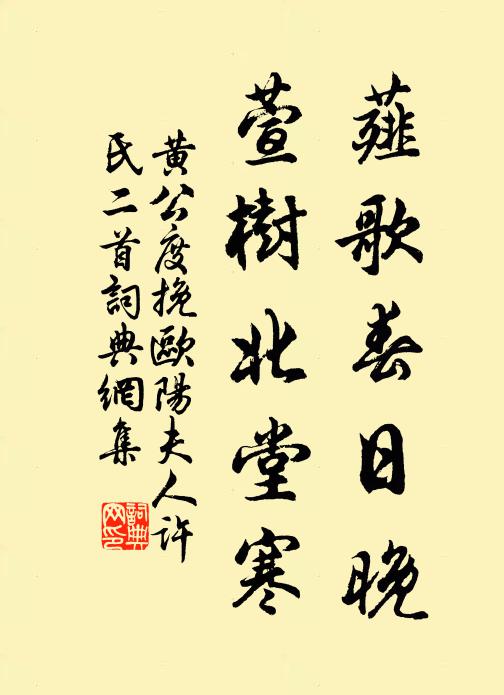 薤歌春日晚
萱樹北堂寒
黄公度挽歐陽夫人许
氏二首詞典網集
詞典
网印